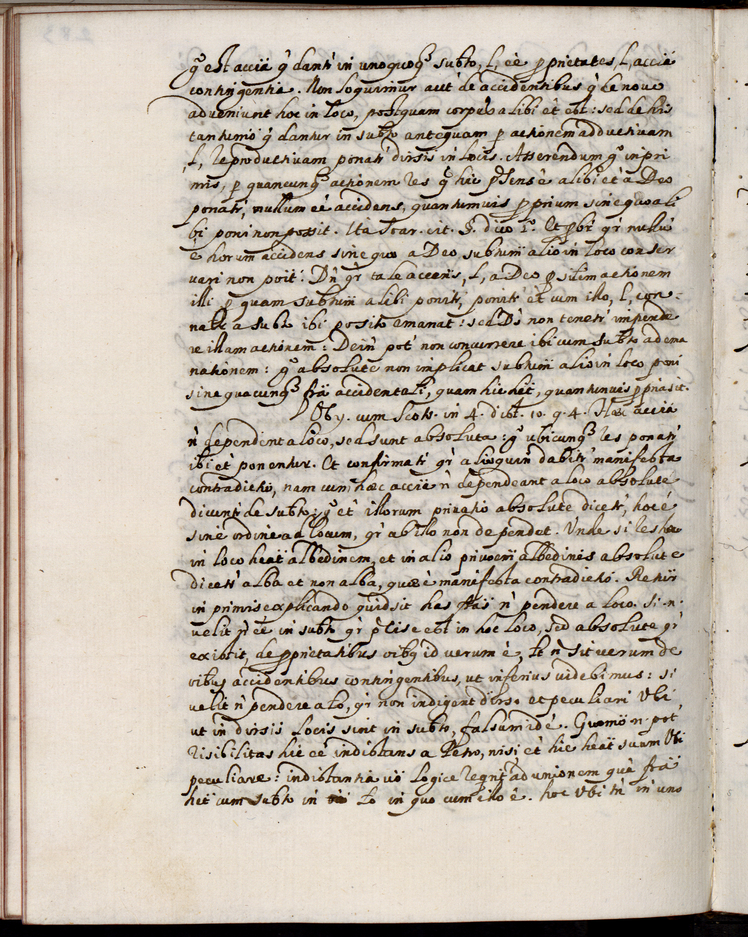 q̃ est acciã q̃ dantr̃ in unoquoq̃ subto, l, eẽ pprietates, l, acciã
contingentia. Non loquimur aut̃ de accidentibus q̃ de nouo
adueniunt hoc in loco, postquam corpus alibi et est: sed de his
tantum̃o q̃ dantur in subto antequam p actionem adductiuam
l, reproductiuam ponatr̃ diũsis in locis. Asserendum q̃ in pri
mis, p quancunq̃ actionem res q̃ hic p̃sens ẽ alibi et a Deo
ponatr̃, nullum eẽ accidens, quantumuis pprium sine quo ali
bi poni non possit. Ita Soar. cit. §. dico 1º. Et pbr̃ qr̃ nullũ
ẽ horum accidens sine quo a Deo, subtum alio in loco conser
uari non poit̃: Dñ qr̃ tale accens, l, a Deo p s̃tim actionem
illi p quam subtum alibi ponitr̃, ponitr̃ et cum illo, l, con-
natr̃ a subto ibi posito emanat: sed Ds̃ non tenetr̃ impende
re illam actionem: Dein̄ pot̃ non concurrere ibi cum subto ad ema
nationem: q̃ absolute non implicat subtum alio in loco poni
sine quacunq̃ frã accidentali, quam hic het̃, quantumuis ppria sit.
Oby. cum Scoto. in 4. dist. 10. q. 4. Hæc acciã
ñ dependent a loco, sed sunt absoluta: q̃ ubicunq̃ res ponatr̃
ibi et ponentur. Et confirmatr̃ qr̃ alioquin dabitr̃ manifesta
contradictio, nam cum hæc acciã ñ dependeant a loco absolute
dicuntr̃ de subto: q̃ et illorum priuatio absolute dicetr̃, hoc ẽ
sine ordine ad locum, qr̃ ab illo non dependet. Unde si res hoc
in loco heat̃ albedinem, et in alio priuoem̃ albedinis absolute
dicetr̃ alba et non alba, quæ ẽ manifesta contradictio. Rẽtur
in primis explicando quid sit has frãs ñ pendere a loco. Si ñ
uelit ñ eẽ in subto qr̃ p̃cise est in hoc loco, sed absolute qr̃
existit, de pprietatibus oĩbus id uerum ẽ, lt̃ ñ sit uerum de
oĩbus accidentibus contingentibus, ut inferius uidebimus: si
uelit ñ pendere a lo, qr̃ non indigent diũso et peculiari Vbi
ut in diũsis locis sint in subto, falsum id ẽ. Quomõ ñ. pot
risibilitas hic eẽ indistans a Petro, nisi et hic heat̃ suum Vbi
peculiare: indistantia uõ logice reqrit̃ ad unionem què frã
het̃ cum subto in lo in quo cum illo ẽ. hoc Vbi tñ in uno